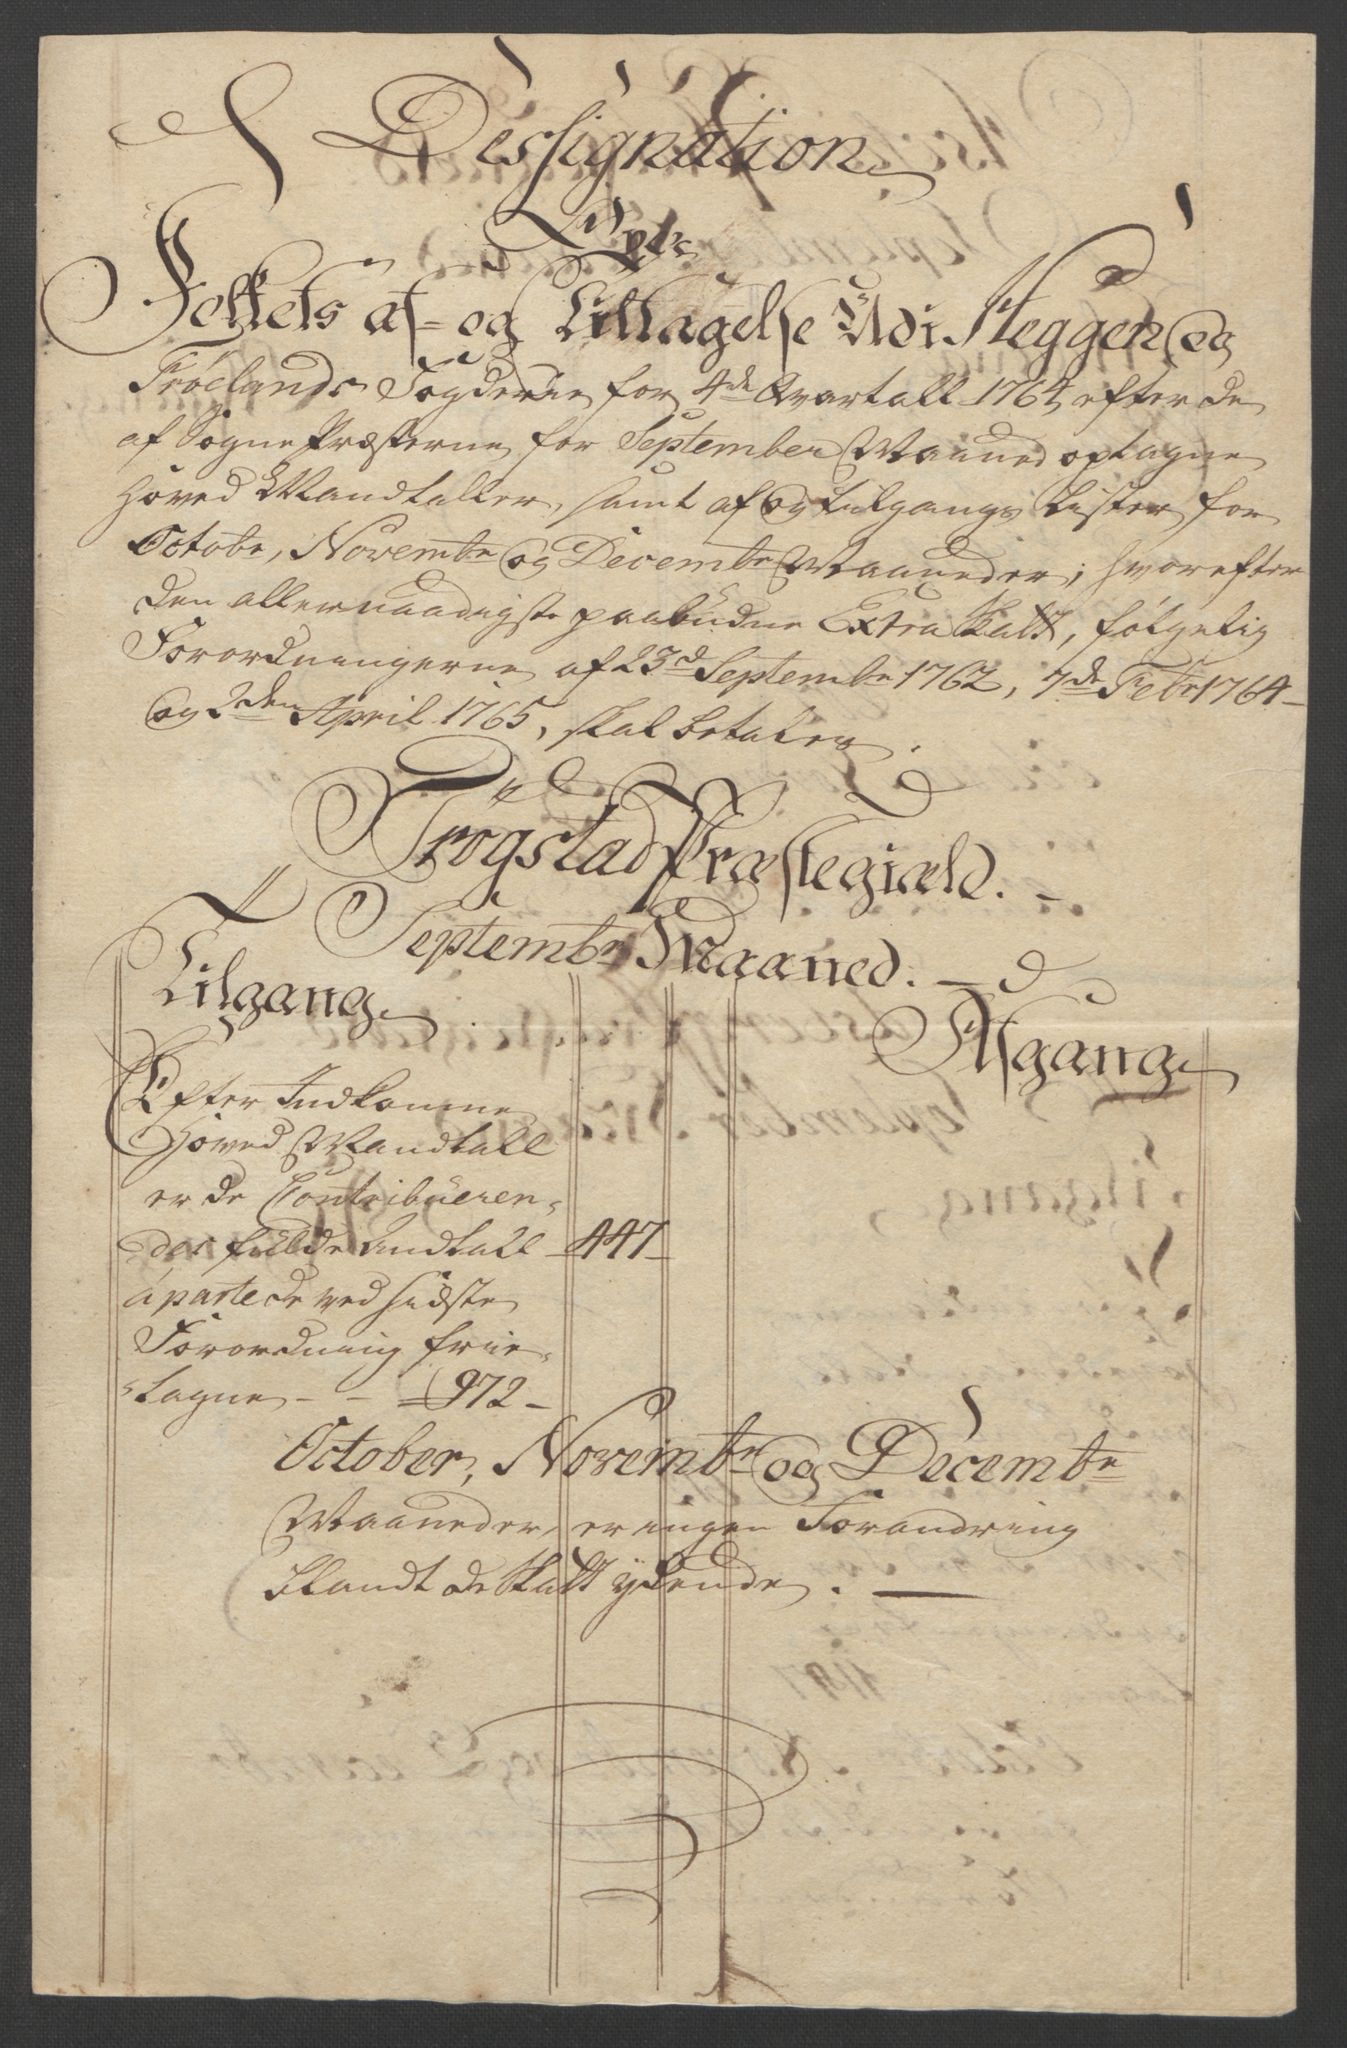 Designation
Over
Folkets af- og Tilltagelse Udi Heggen og
Frølands Fogderie for 4de Qvartall 1764 efter de
af Sogne Præsterne for September Maaned optagne
Hoved Mandtaller, samt af og tilgangs Lister for
Octobr, Novembr og Decembr Maaneder; hvorefter
den allernaadigste paabudne Extra Skatt, følgelig
Forordningerne af 23d Septembr 1762, 7de Febr 1764
og 2den April 1765, skal betales.
Trögstad Præstegiæld.
Septembr Maaned.
Tilgang
Afgang
Efter Indkomne
Hoved Mandtall
er de Contribueren-
des fulde Andtall 447
a parte de ved sidste
Forordning frie-
tagne - - 972
October, Novembr og Decembr
Maaneder, er ingen Forandring
blandt de Skatt ydende.